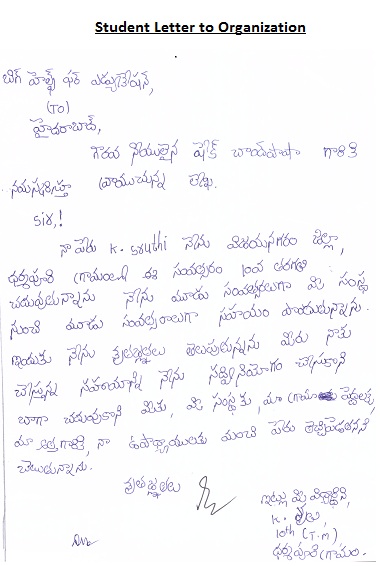 Student Letter to Organization
బిగ్ హెల్ప్ ఫర్ ఎడ్యుకేషన్,
(To)
హైదరాబాద్,
గౌరవ నీయులైన షేక్ చాంద్‌పాషా గారికి
నమస్కరిస్తూ వ్రాయుచున్న లేఖ.
Sir,!
నా పేరు K. Sruthi నేను విజయనగరం జిల్లా,
ధర్మపూరి గ్రామంలో ఈ సంవత్సరం 10వ తరగతి
చదువుతున్నాను నేను మూడు సంవత్సరాలుగా మీ సంస్థ
నుంచి మూడు సంవత్సరాలుగా సహాయం పొందుతున్నాను.
ఇందుకు నేను కృతజ్ఞతలు తెలుపుతున్నను మీరు నాకు
చేస్తున్న సహాయాన్ని నేను సద్వినియోగం చేసుకొని
బాగా చదువుకొని మీకు, మీ సంస్థకు, మా గ్రామ పెద్దలకు,
మా గారికి, నా ఉపాధ్యాయులకు మంచి పేరు తెచ్చిపెడతానని
చెబుతున్నాను.
కృతజ్ఞతలు
ఇట్లు మీ విద్యార్థిని,
K. శృతి,
10th (T.M)
ధర్మపూరి గ్రామం.